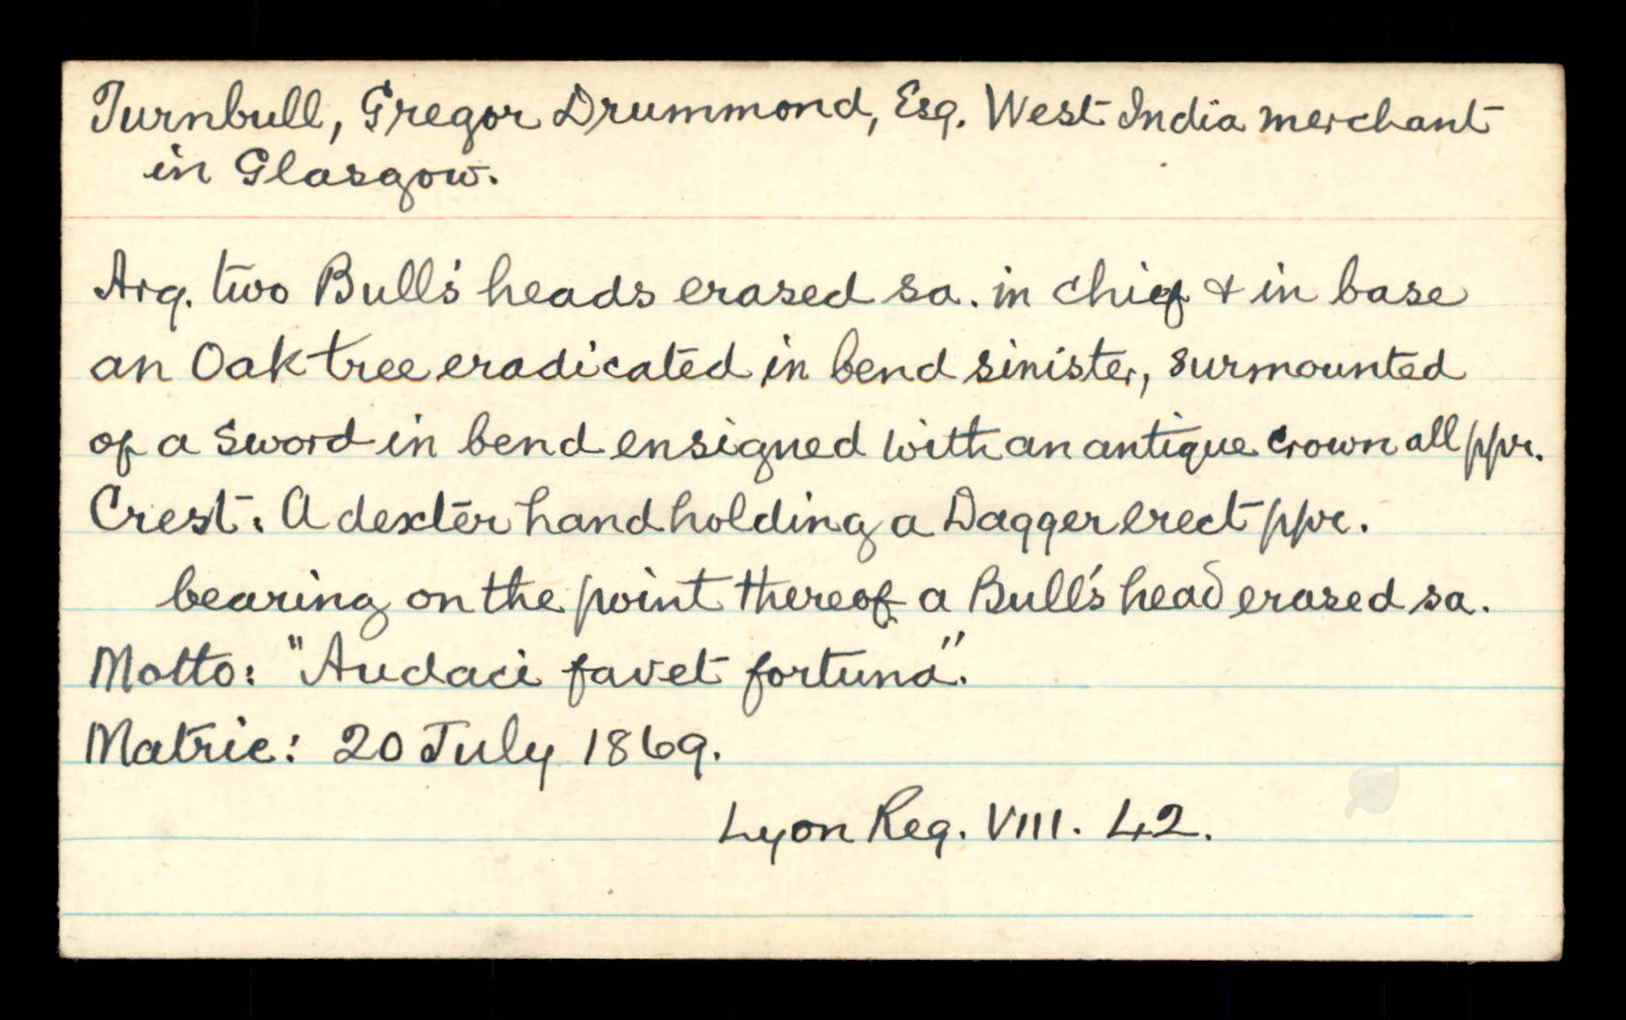 Turnbull, Gregor Drummond, Esq. West India merchant
in Glasgow.
Arg. two Bull's heads erased sa. in chief & in base
an Oak tree eradicated in bend sinister, surmounted
of a Sword in bend ensigned with an antique crown all ppr.
Crest: A dexter hand holding a Dagger erect ppr.
bearing on the point thereof a Bull's head erased sa.
Motto: "Audaci favet fortuna".
Matric: 20 July 1869.
Lyon Reg. VIII. 42.